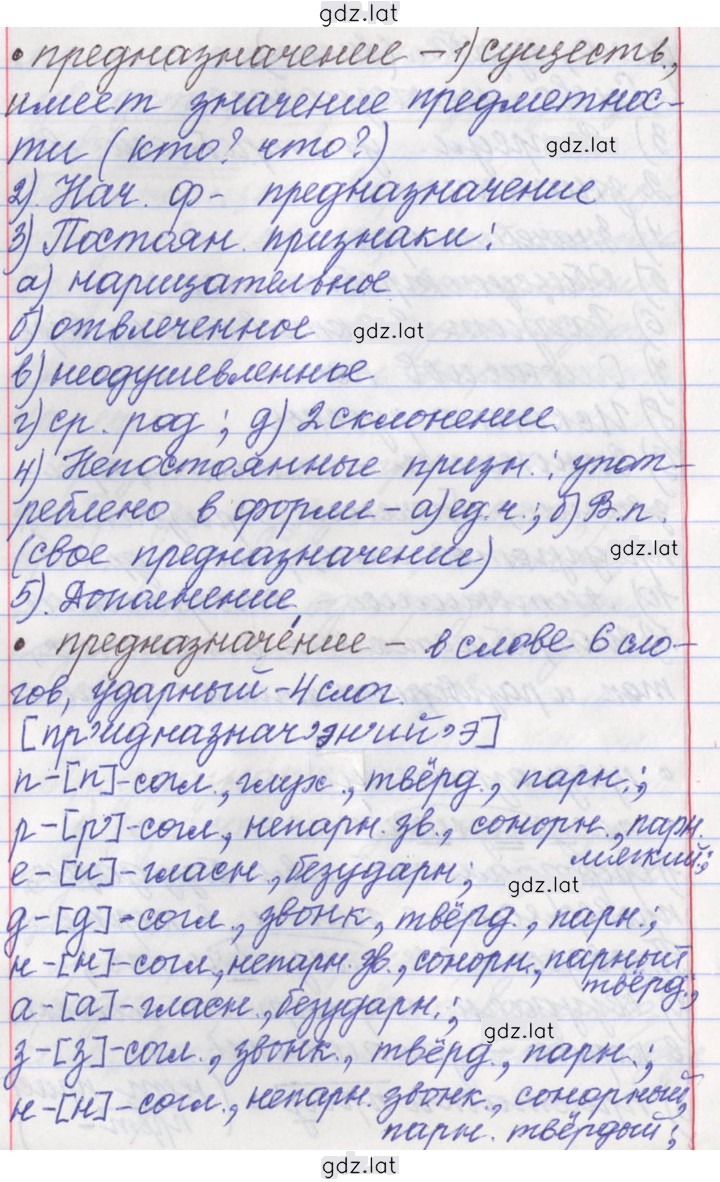 gdz.lat
• предназначение – 1) существ.,
имеет значение предметнос-
ти (кто? что?)
gdz.lat
2). Нач. ф- предназначение
3) Постоян. признаки:
а) нарицательное
б) отвлеченное
gdz.lat
в) неодушевленное
г) ср. род; д) 2 склонение
4) Непостоянные призн.: упот-
реблено в форме – а) ед.ч.; б) В.п.
(свое предназначение)
gdz.lat
5). Дополнение
• предназначе́ние – в слове 6 сло-
гов, ударный – 4 слог.
[пр'идназнач'эн'ий'э]
п – [п] – согл., глух., твёрд., парн.;
р – [р'] – согл., непарн. зв., сонорн., парн.
мягкий;
е – [и] – гласн., безударн;
gdz.lat
д – [д] – согл., звонк, твёрд., парн.;
н – [н] – согл., непарн. зв., сонорн., парный
твёрд.;
а – [а] – гласн., безударн.;
gdz.lat
з – [з] – согл., звонк., твёрд., парн.;
н – [н] – согл., непарн. звонк., сонорный,
парн. твёрдый;
gdz.lat